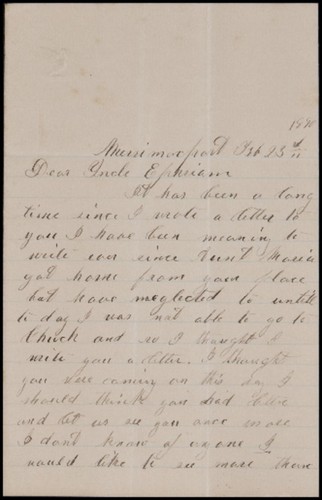 Merrimacport Feb 23rd
Dear Uncle Ephriam
It has been a long
time since I wrote a letter to
you I have been meaning to
write ever since Aunt Maria
got home from your place
but have neglected to until
to day I was not able to go to
Church and so I thought I
write you a letter. I thought
you were coming on this
I
should think you had
and let us see you once more
I dont know of anyone I
would like to see more than